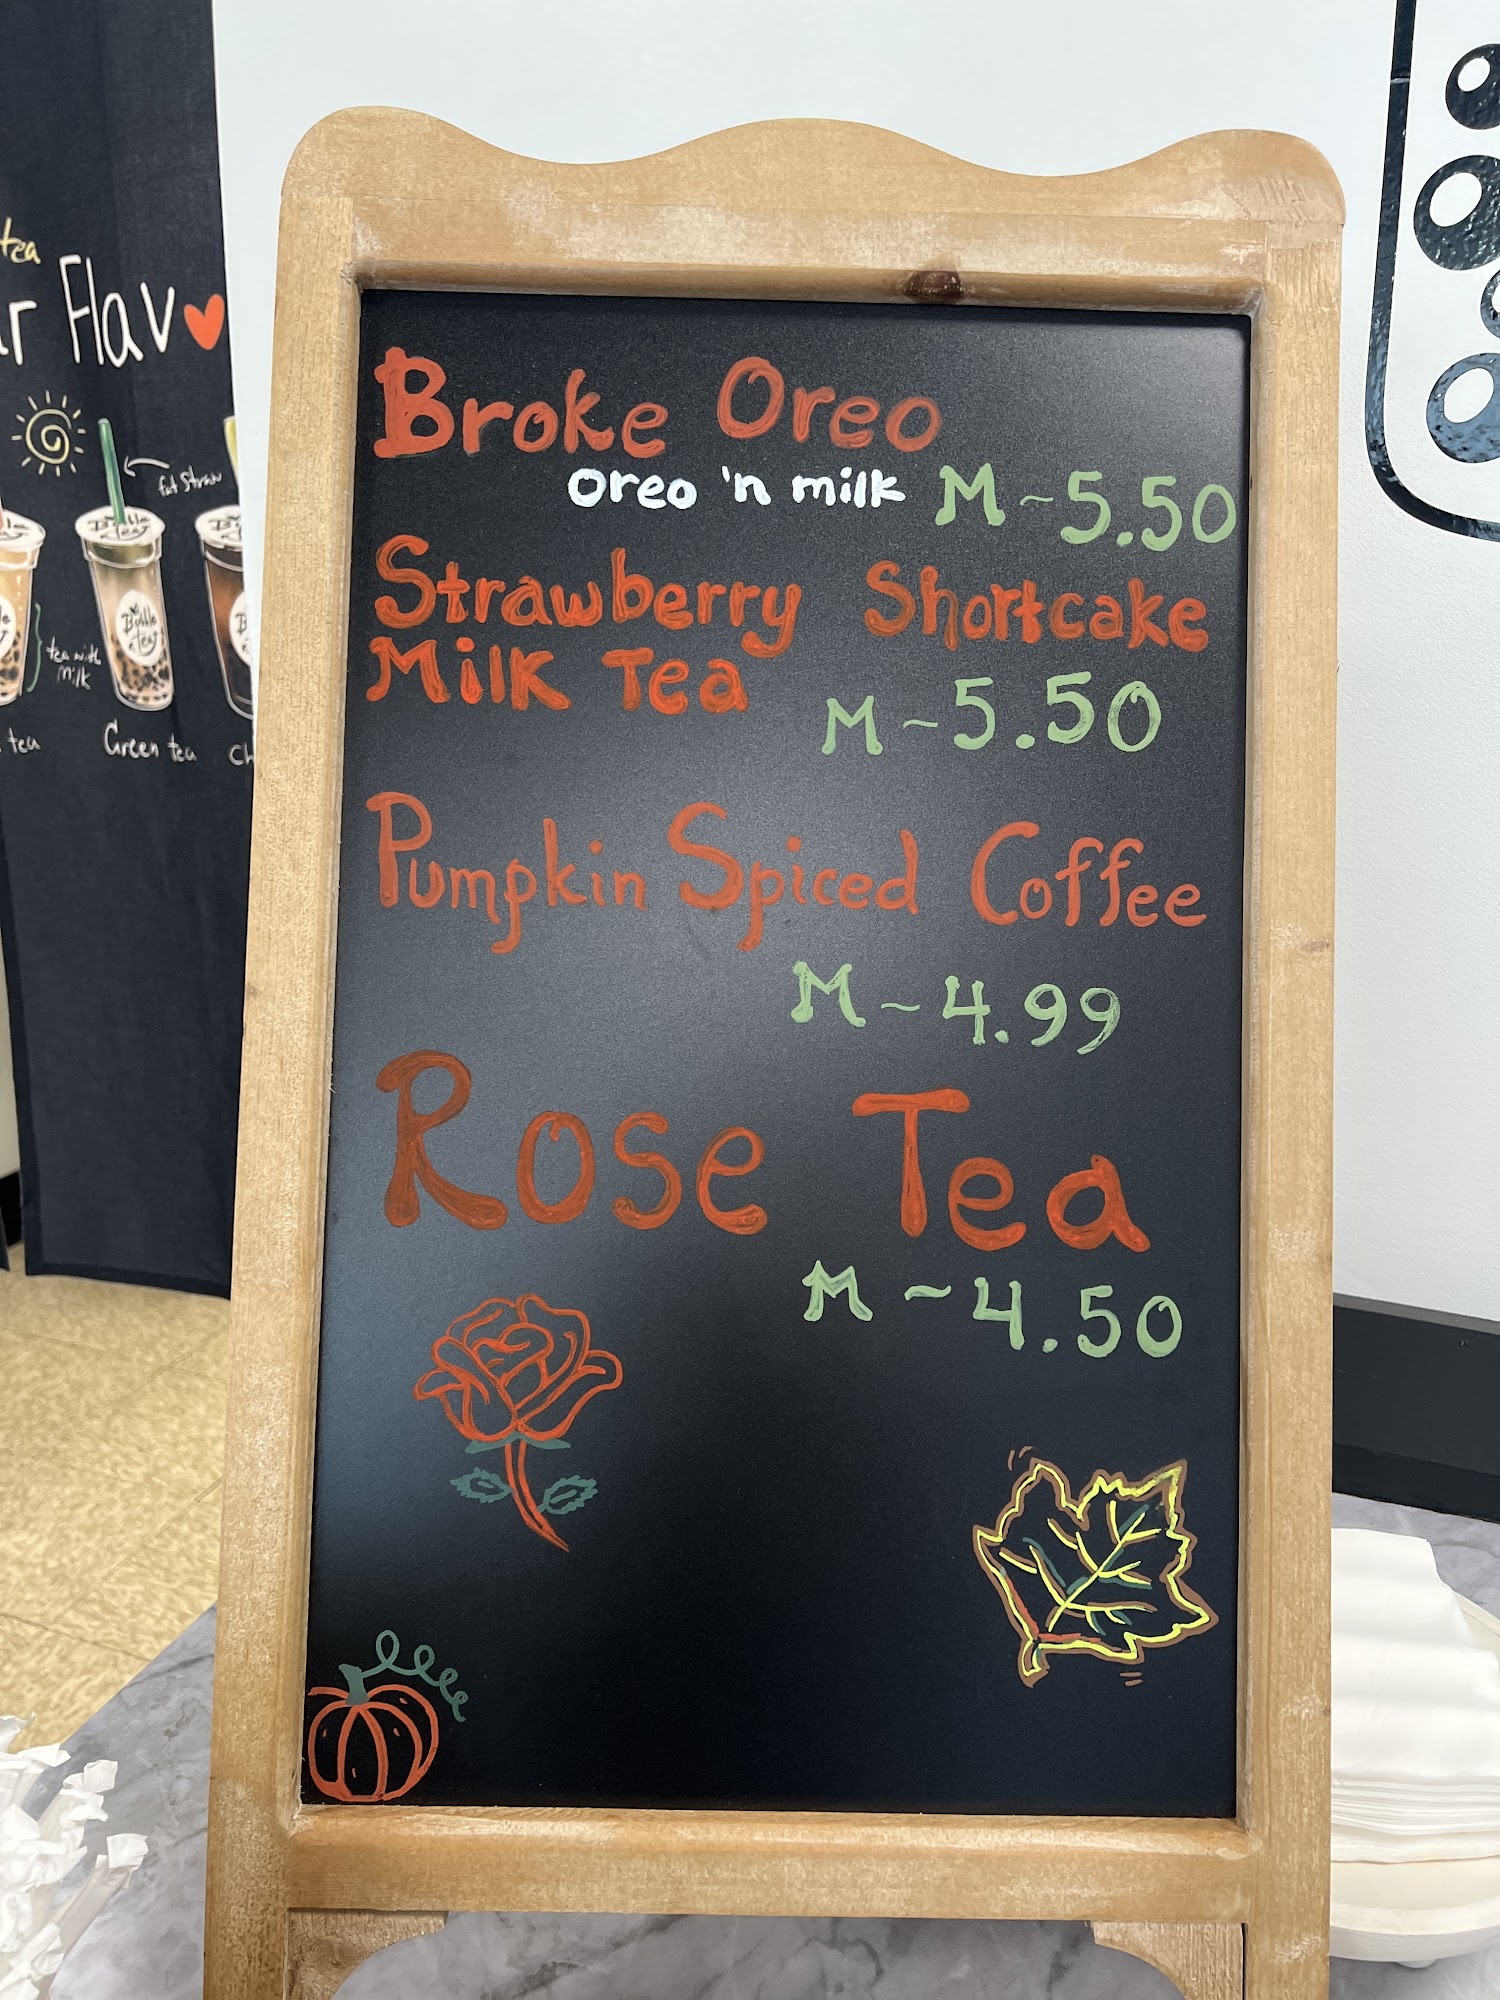 Broke Oreo
oreo 'n milk M ~ 5.50
Strawberry Shortcake
Milk Tea
M ~ 5.50
Pumpkin Spiced Coffee
M ~ 4.99
Rose Tea
M ~ 4.50
tea
Flav
fat straw
Bubble
Tea
Bubble
Tea
tea with
milk
tea
Green tea